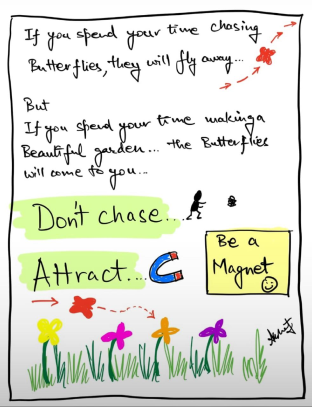 If you spend your time chasing
Butterflies, they will fly away...
But
If you spend your time making a
Beautiful garden... the Butterflies
will come to you...
Don't chase...
Attract...
Be a
Magnet